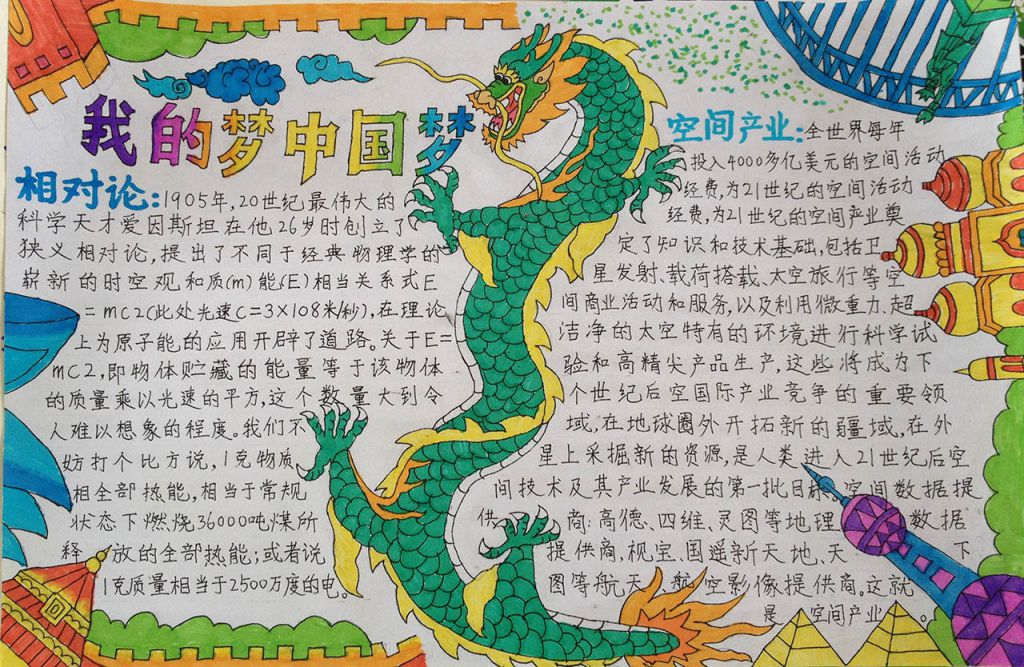 我的梦中国梦
相对论:1905年,20世纪最伟大的
科学天才爱因斯坦在他26岁时创立了
狭义相对论,提出了不同于经典物理学的
崭新的时空观和质(m)能(E)相当关系式E
=mc2(此处光速c=3×108米/秒),在理论
上为原子能的应用开辟了道路。关于E=
mc2,即物体贮藏的能量等于该物体
的质量乘以光速的平方,这个数量大到令
人难以想象的程度。我们不
妨打个比方说,1克物质
相全部热能,相当于常规
状态下燃烧36000吨煤所
释放的全部热能;或者说
1克质量相当于2500万度的电。
空间产业:全世界每年
投入4000多亿美元的空间活动
经费,为21世纪的空间活动
经费,为21世纪的空间产业奠
定了知识和技术基础,包括卫
星发射、载荷搭载、太空旅行等空
间商业活动和服务,以及利用微重力、超
洁净的太空特有的环境进行科学试
验和高精尖产品生产,这些将成为下
个世纪后空国际产业竞争的重要领
域,在地球圈外开拓新的疆域,在外
星上采掘新的资源,是人类进入21世纪后空
间技术及其产业发展的第一批目标。空间数据提
供商:高德、四维、灵图等地理数据
提供商,视宝、国遥新天地、天下
图等航天航空影像提供商。这就
是空间产业。